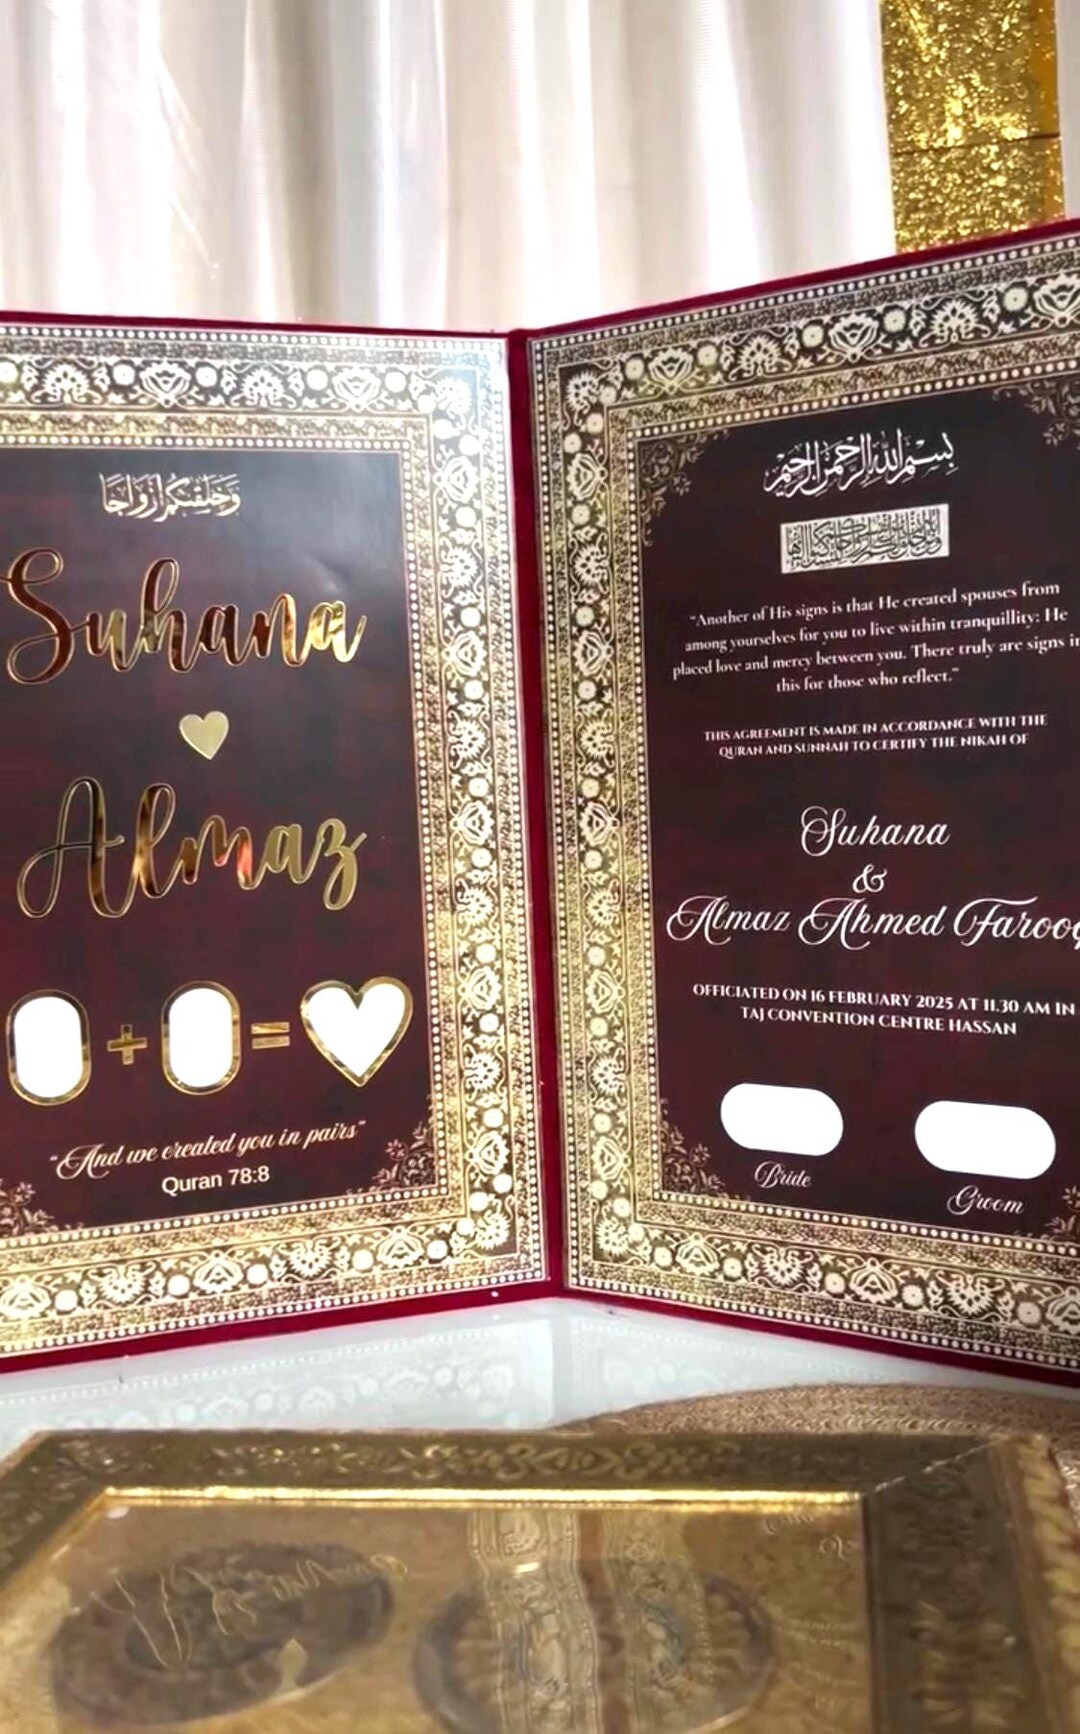 وَخَلَقْنَكُمْ أَزْوَاجًا
Suhana
Almaz
+ =
“And we created you in pairs”
Quran 78:8
بِسْمِ اللهِ الرَّحْمٰنِ الرَّحِيْمِ
“Another of His signs is that He created spouses from
among yourselves for you to live within tranquillity: He
placed love and mercy between you. There truly are signs in
this for those who reflect.”
THIS AGREEMENT IS MADE IN ACCORDANCE WITH THE
QURAN AND SUNNAH TO CERTIFY THE NIKAH OF
Suhana
&
Almaz Ahmed Farooq
OFFICIATED ON 16 FEBRUARY 2025 AT 11.30 AM IN
TAJ CONVENTION CENTRE HASSAN
Bride
Groom